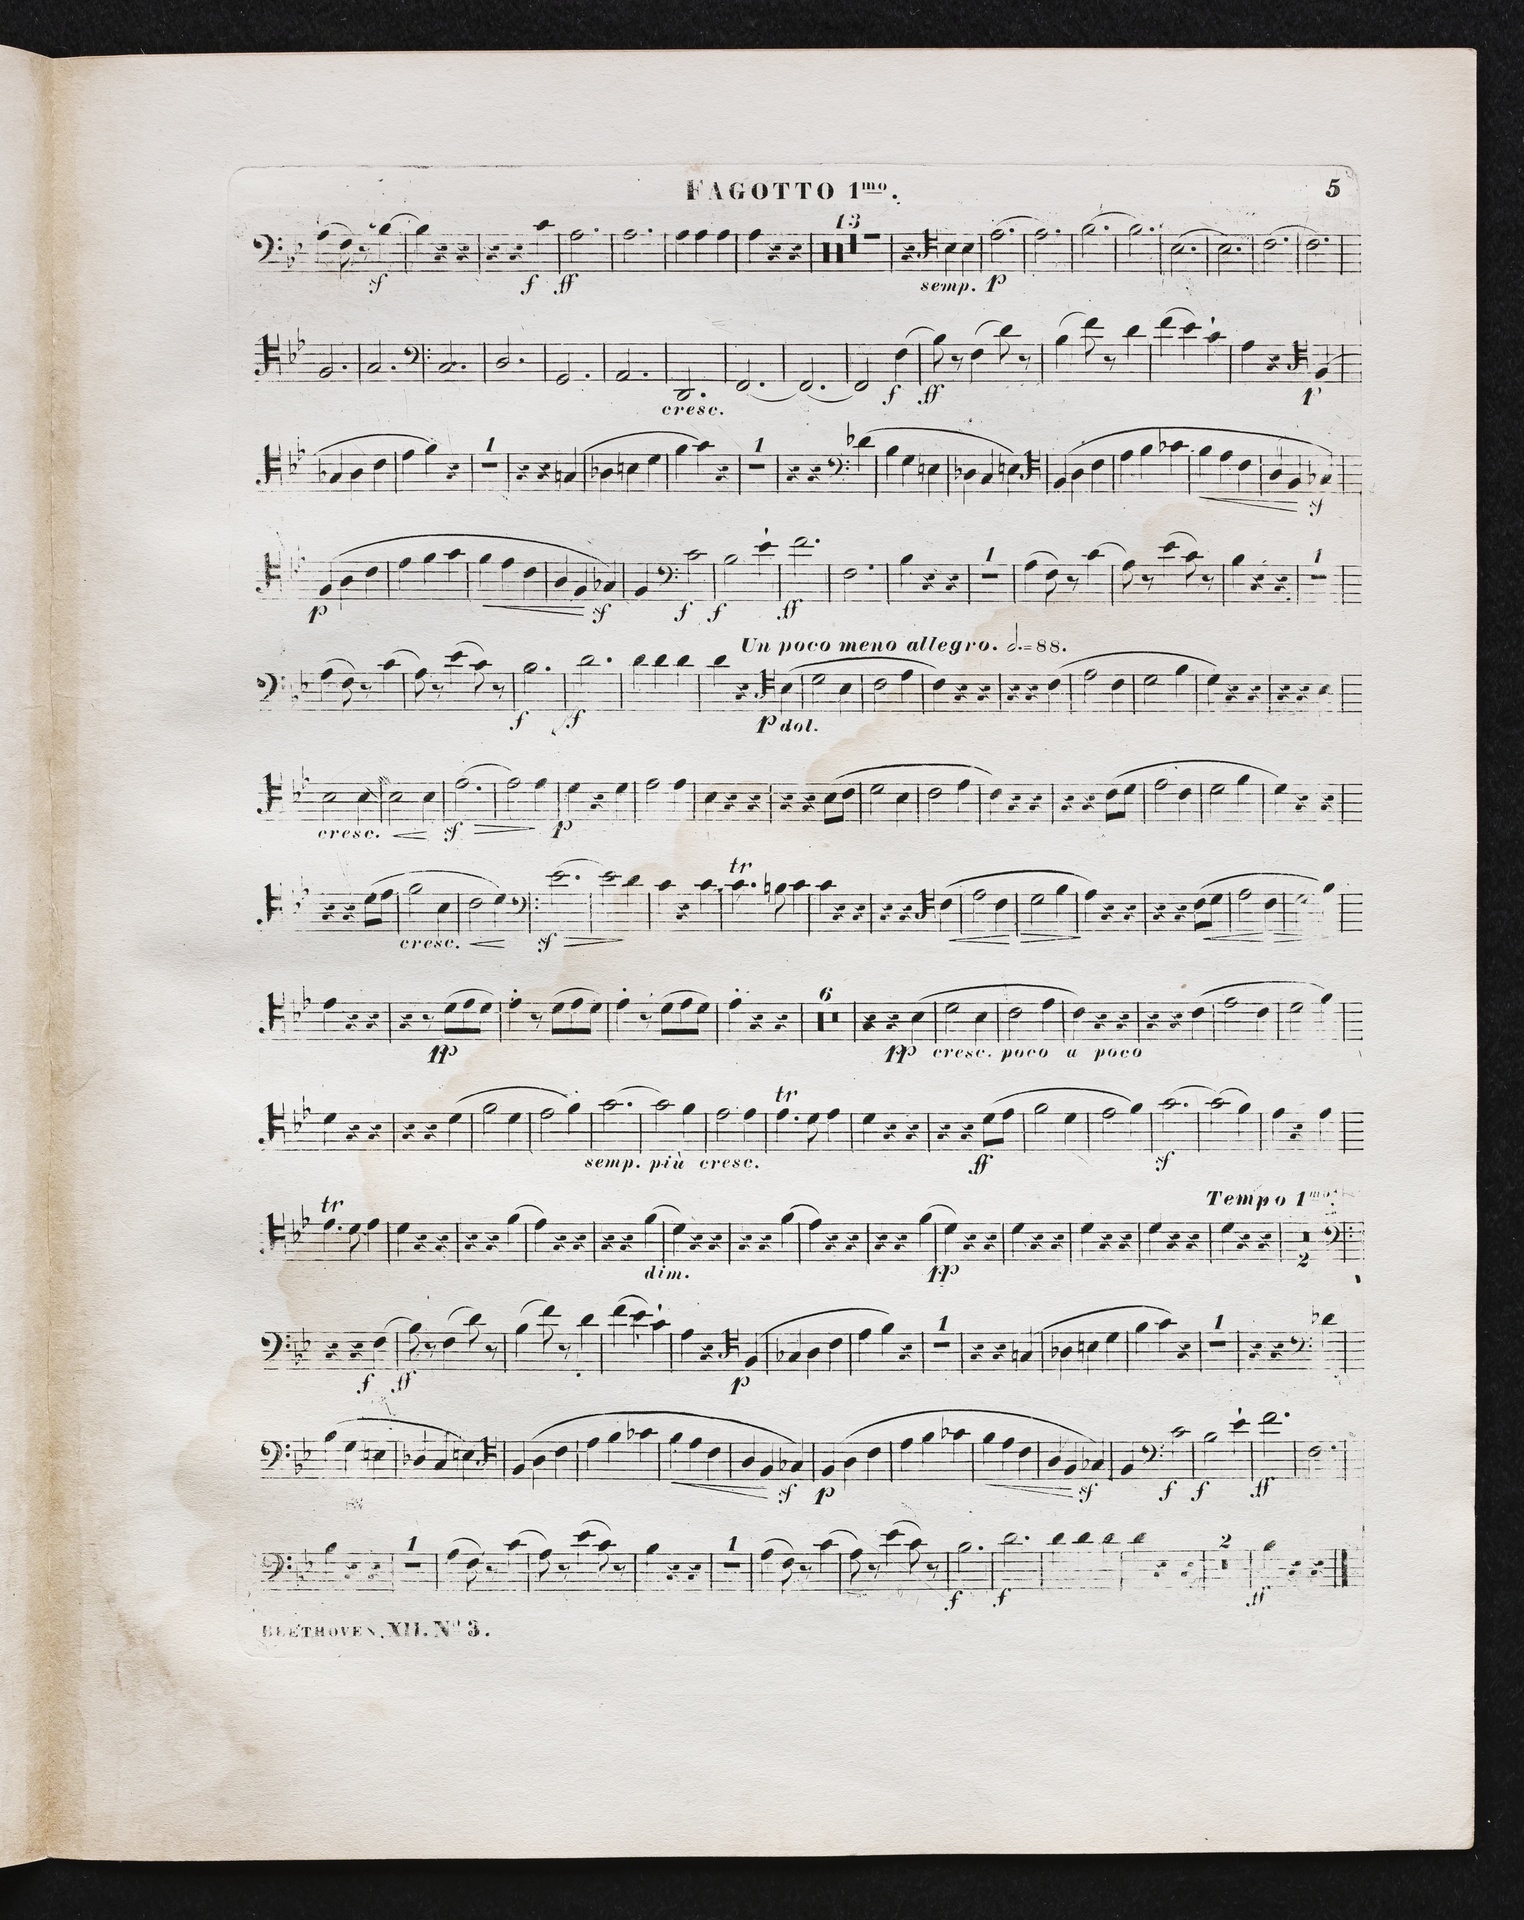 FAGOTTO 1mo. 5
13
f f ff semp. p
cresc. f ff p
1 1
f
p f f f ff 1 1
Un poco meno allegro. =88.
f f p dol.
cresc. f p
tr
cresc. f
6
pp pp cresc. poco a poco
tr
semp. più cresc. ff f
tr Tempo 1mo
dim. pp 2
1 1
f ff p
f p f f f ff
1 1 2
f f ff
BEETHOVEN, XII. No 3.